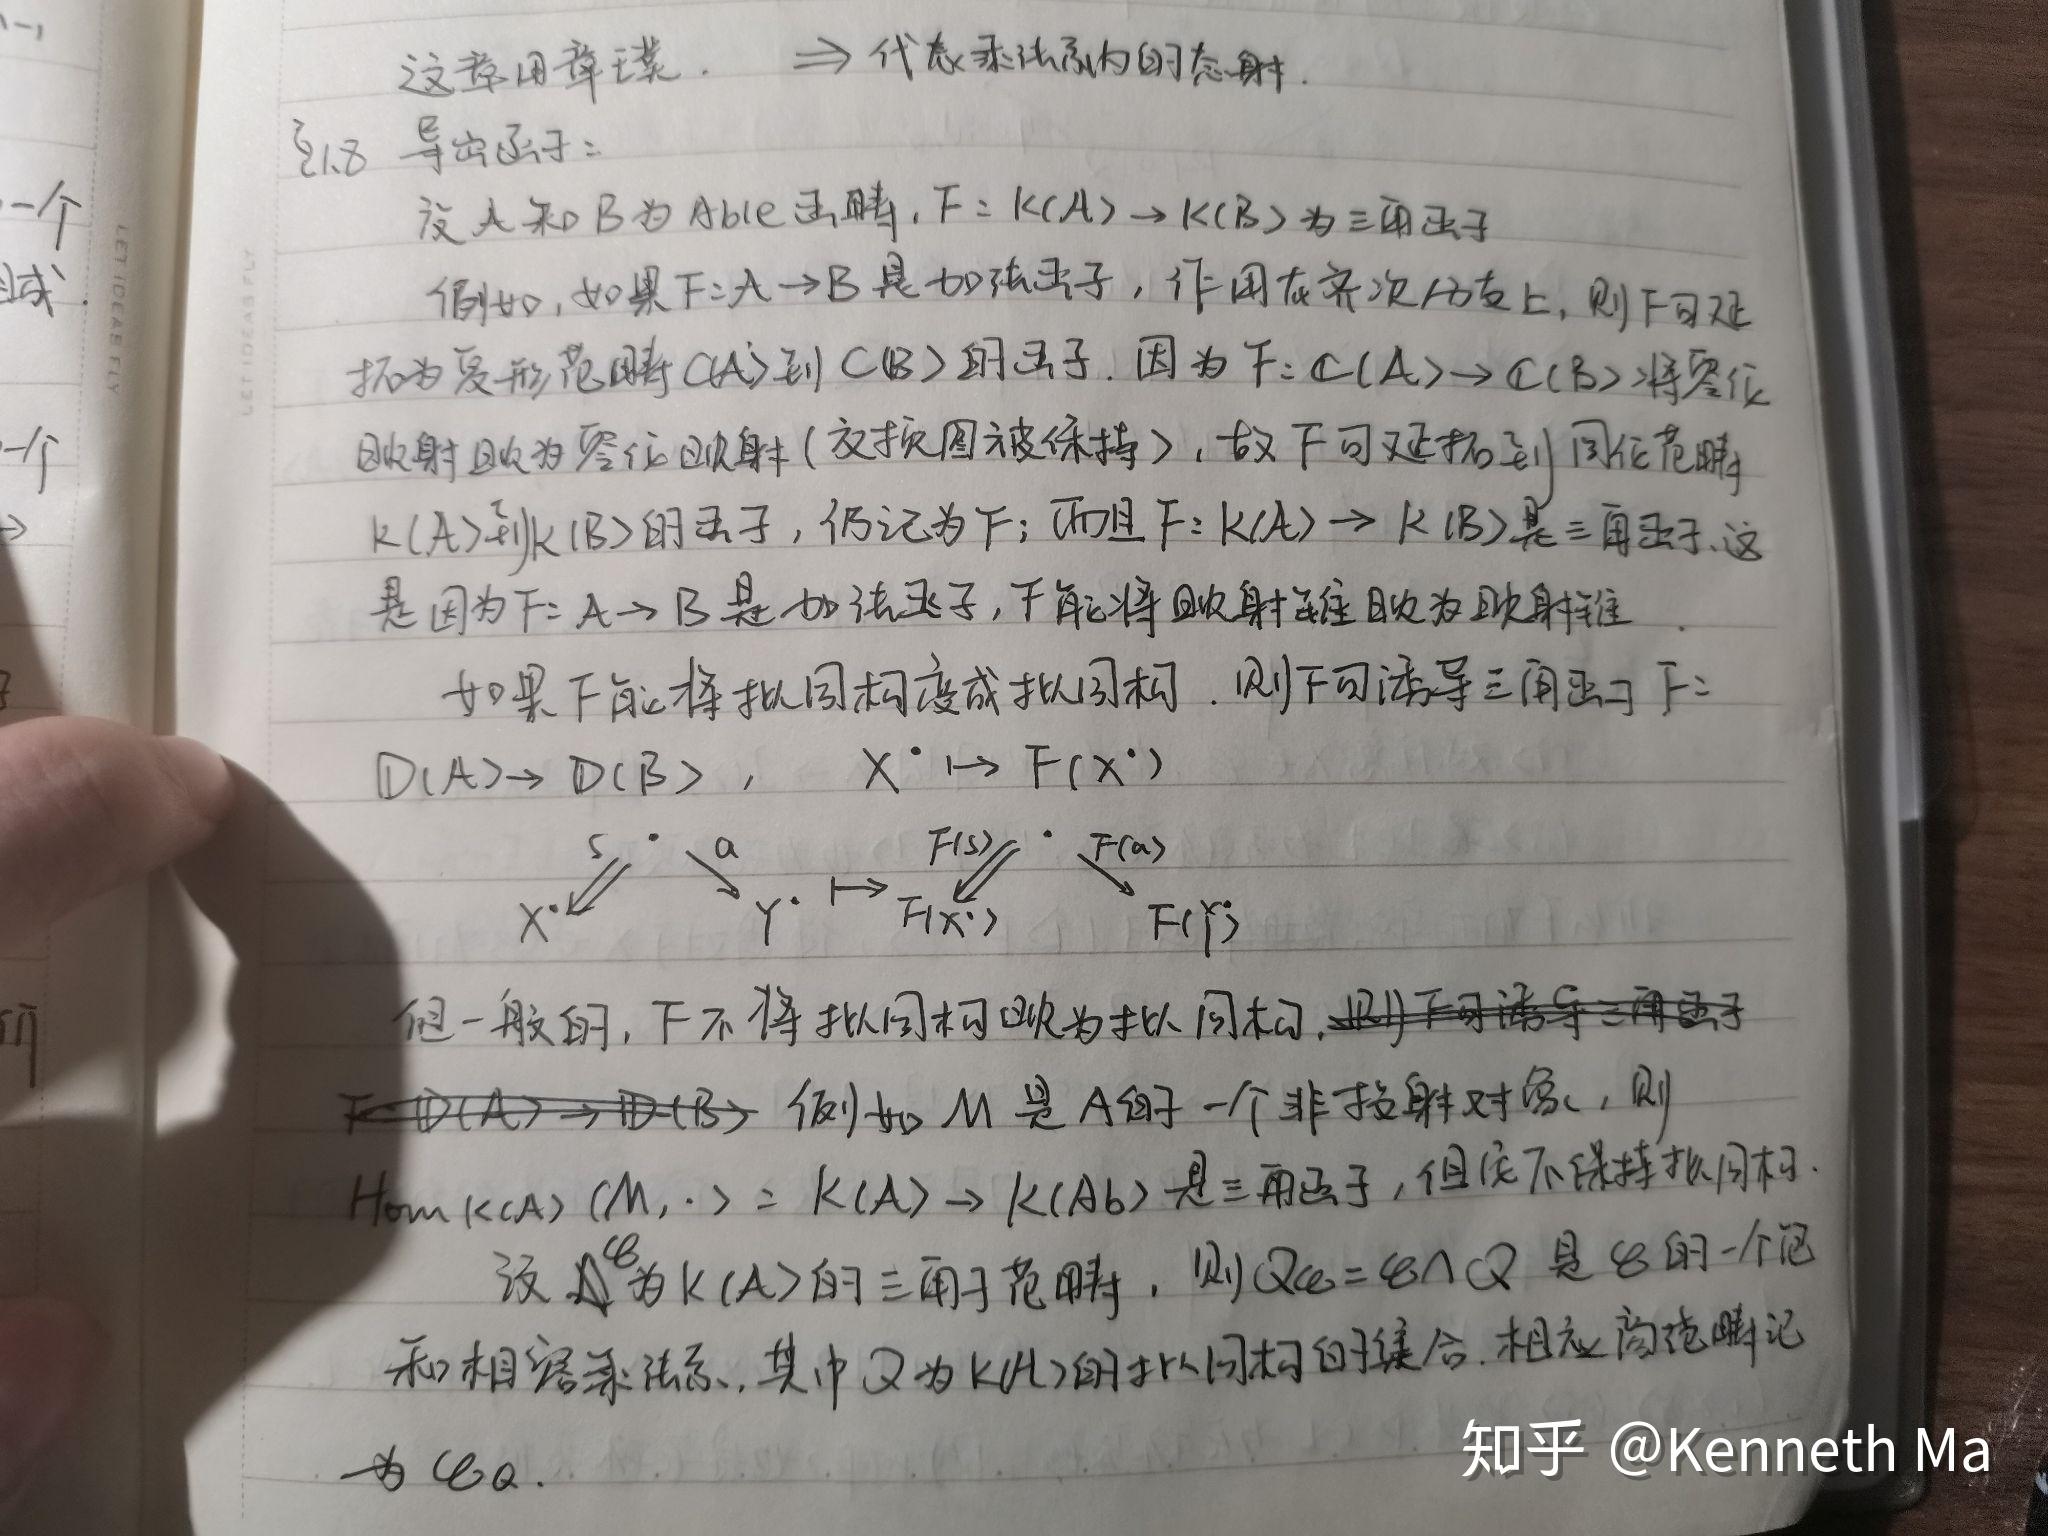 这章用章璞. ⇒ 代表乘法系内的态射.
§1.8 导出函子:
设 A 和 B 为 Able 函畴, F: K(A) → K(B) 为三角函子
例如, 如果 F: A → B 是加法函子, 作用在齐次分支上, 则 F 可延
拓为复形范畴 C(A) 到 C(B) 的函子. 因为 F: C(A) → C(B) 将零伦
映射映为零伦映射(交换图被保持), 故 F 可延拓到同伦范畴
K(A) 到 K(B) 的函子, 仍记为 F; 而且 F: K(A) → K(B) 是三角函子. 这
是因为 F: A → B 是加法函子, F 能将映射锥映为映射锥.
如果 F 能将拟同构变成拟同构. 则 F 可诱导三角函子 F:
D(A) → D(B), X• ↦ F(X•)
s • a F(s) • F(a)
X• Y• ↦ F(X•) F(Y•)
但一般的, F 不将拟同构映为拟同构. 则 F 可诱导三角函子
F: D(A) → D(B) 例如 M 是 A 的一个非投射对象, 则
Hom K(A) (M, ·) : K(A) → K(Ab) 是三角函子, 但它不保持拟同构.
设 φ 为 K(A) 的三角子范畴, 则 Qφ = φ ∩ Q 是 φ 的一个饱
和相容乘法系, 其中 Q 为 K(A) 的拟同构的集合. 相应商范畴记
为 φQ.
知乎 @Kenneth Ma
LET IDEAS FLY
LET IDEAS FLY
一个
组成.
一个